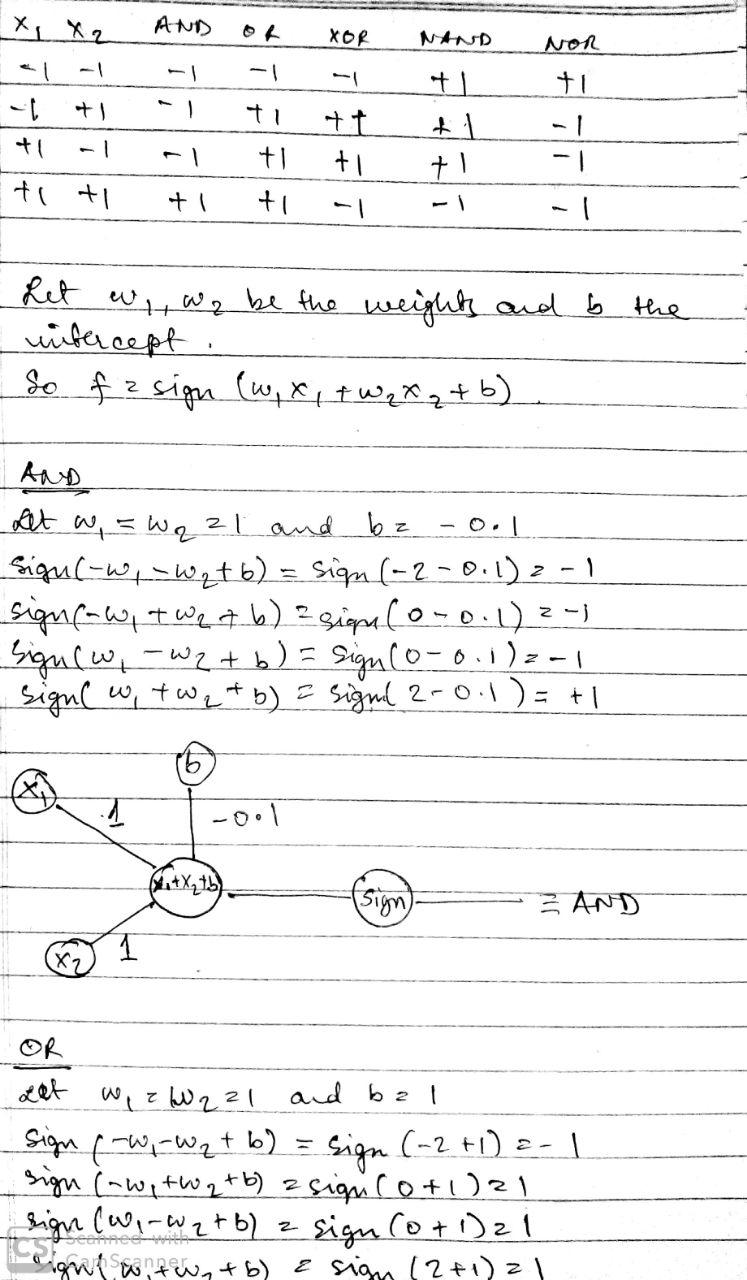 x₁ x₂ AND OR XOR NAND NOR
-1 -1 -1 -1 -1 +1 +1
-1 +1 -1 +1 +1 +1 -1
+1 -1 -1 +1 +1 +1 -1
+1 +1 +1 +1 -1 -1 -1
Let w₁, w₂ be the weights and b the
intercept.
So f = sign (w₁x₁ + w₂x₂ + b).
AND
Let w₁ = w₂ = 1 and b = -0.1
Sign(-w₁ - w₂ + b) = sign (-2 - 0.1) = -1
sign(-w₁ + w₂ + b) = sign(0 - 0.1) = -1
Sign(w₁ - w₂ + b) = sign(0 - 0.1) = -1
sign(w₁ + w₂ + b) = sign(2 - 0.1) = +1
b
x₁
1
-0.1
x₁+x₂+b
Sign
≡ AND
x₂
1
OR
Let w₁ = w₂ = 1 and b = 1
Sign (-w₁ - w₂ + b) = sign (-2 + 1) = -1
sign (-w₁ + w₂ + b) = sign(0 + 1) = 1
sign (w₁ - w₂ + b) = sign (0 + 1) = 1
sign(w₁ + w₂ + b) = sign (2 + 1) = 1
CS Scanned with
CamScanner